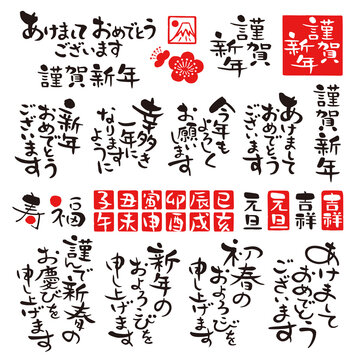 あけまして おめでとう
ございます
謹賀新年
謹賀
新年
謹賀
新年
謹賀新年
あけまして
おめでとう
ございます
今年も
よろしく
お願い
します
幸多き
一年に
なります
ように
新年
おめでとう
ございます
寿
福
子 丑 寅 卯 辰 巳
午 未 申 酉 戌 亥
元旦
元旦
吉祥
吉祥
あけまして
おめでとう
ございます
初春の
およろこびを
申し上げます
新年の
およろこびを
申し上げます
謹んで新春の
お慶びを
申し上げます